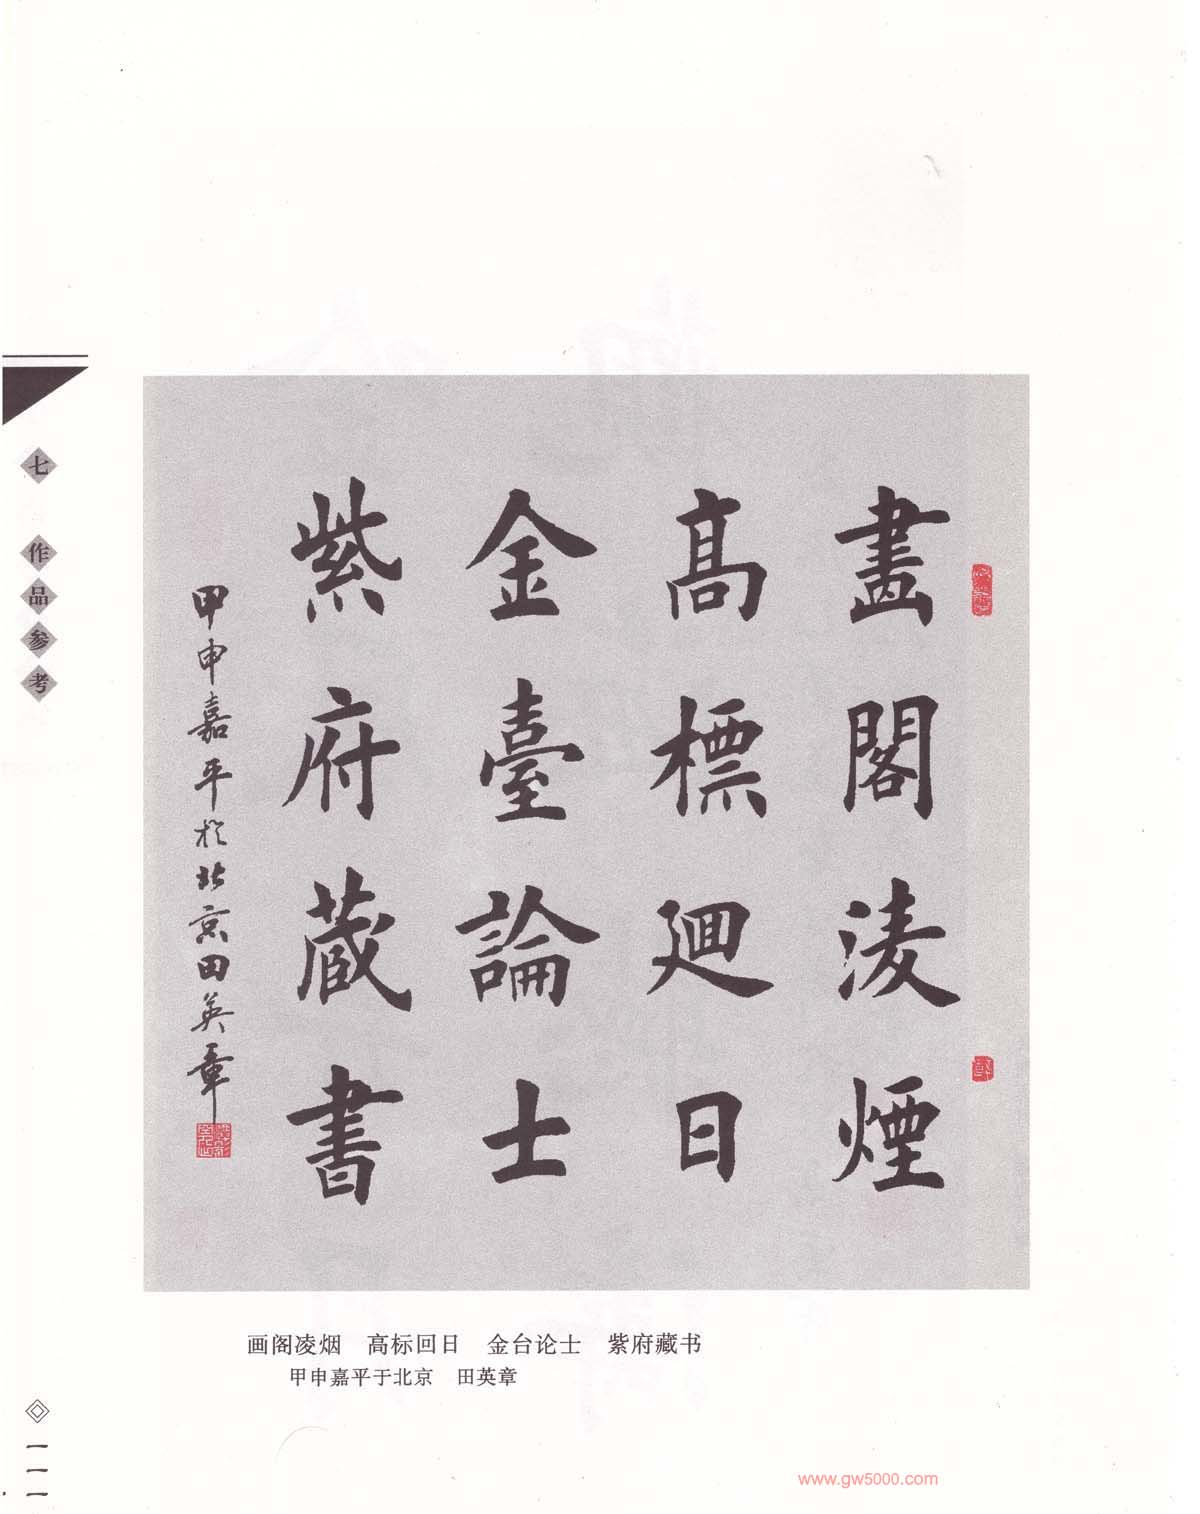 畫閣淩煙
高標迴日
金臺論士
紫府蔵書
甲申嘉平於北京田英章
七 作品参考
画阁凌烟 高标回日 金台论士 紫府藏书
甲申嘉平于北京 田英章
一一一
www.gw5000.com